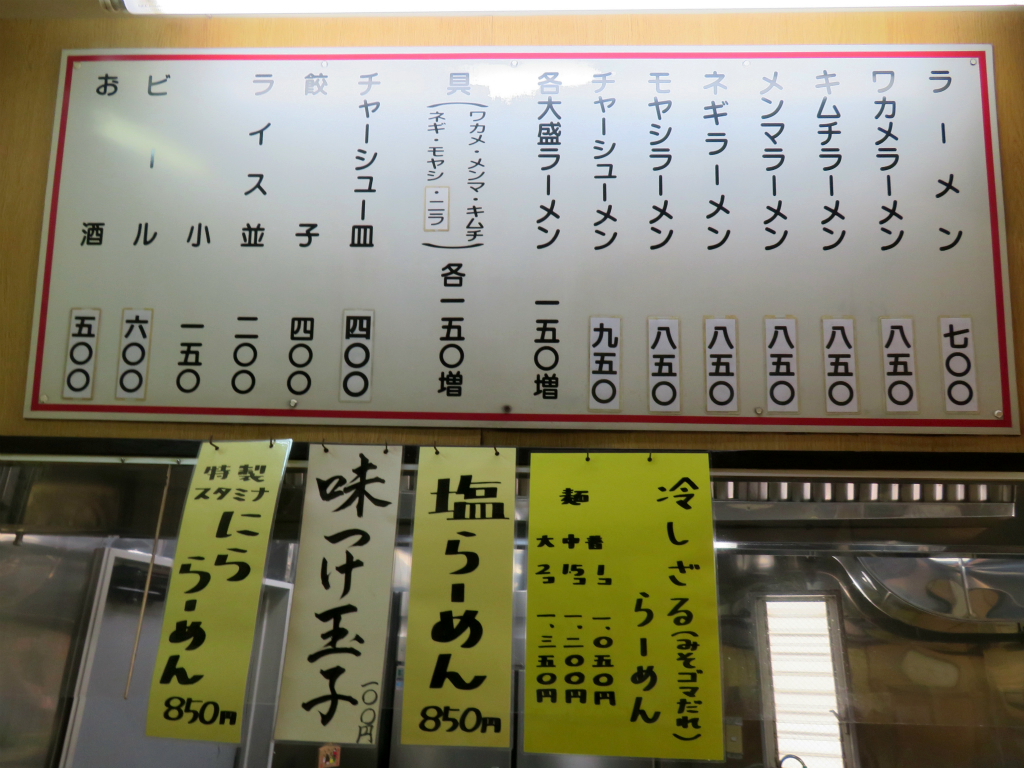 ラーメン 七〇〇
ワカメラーメン 八五〇
キムチラーメン 八五〇
メンマラーメン 八五〇
ネギラーメン 八五〇
モヤシラーメン 八五〇
チャーシューメン 九五〇
各大盛ラーメン 一五〇増
具(ワカメ・メンマ・キムチ
ネギ・モヤシ・ニラ) 各一五〇増
チャーシュー皿 四〇〇
餃子 四〇〇
ライス並 二〇〇
小 一五〇
ビール 六〇〇
お酒 五〇〇
冷しざる(みそゴマだれ)
らーめん
麺
大 中 番
2コ 1.5コ 1コ
一、〇五〇円
一、二〇〇円
一、三五〇円
塩らーめん
850円
味つけ玉子
一〇〇円
特製
スタミナ
にら
らーめん
850円